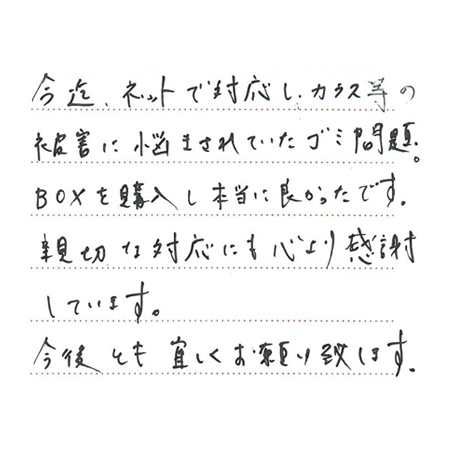 今迄、ネットで対応し、カラス等の
被害に悩まされていたゴミ問題。
BOXを購入し本当に良かったです。
親切な対応にも心より感謝
しています。
今後とも宜しくお願い致します。